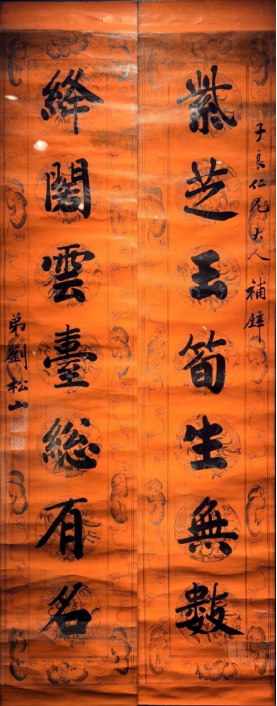 子良仁兄大人 補壁
紫芝玉筍生無數
絳閣雲臺總有名
弟劉松山